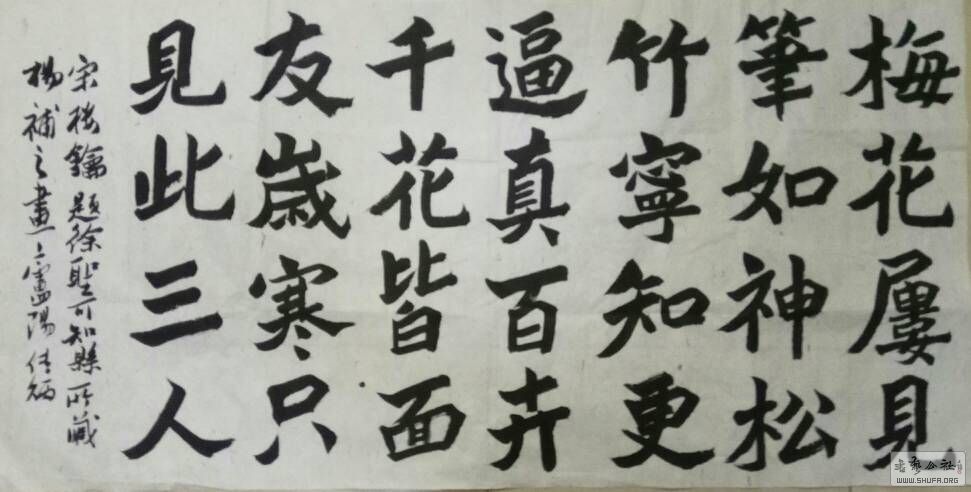 梅花屢見
筆如神松
竹寧知更
逼真百卉
千花皆面
友歲寒只
見此三人
宋楼鑰題徐聖可知縣所藏
楊補之畫
書法公社
WWW.SHUFA.ORG